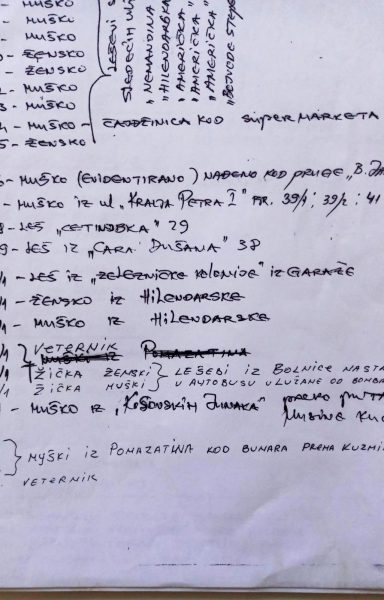 - MUŠKO
- MUŠKO
- MUŠKO
- ŽENSKO
- ŽENSKO
- MUŠKO
- MUŠKO
- MUŠKO - ZADŽINICA KOD SUPERMARKETA
- ŽENSKO
LEŠEVI S
SLEDEĆIH ULI
"NEMANJINA
"HILENDARSKA
"AMERIČKA
"AMERIČKA
"AMERIČKA
"VOJVODE STEPE
- MUŠKO (EVIDENTIRANO) NAĐENO KOD PRUGE "B.
- MUŠKO IZ UL "KRALJA PETRA I" BR. 39/1; 39/2; 41
- LEŠ "CETINJSKA" 29
9 - LEŠ IZ "CARA DUŠANA" 38
/1 - LEŠ IZ "ŽELEZNIČKE KOLONIJE" IZ GARAŽE
/1 - ŽENSKO IZ HILENDARSKE
/1 - MUŠKO IZ HILENDARSKE
VETERNIK
/1 MUŠKI IZ POMAZATINA
/1 ŽIČKA ŽENSKI } LEŠEVI IZ BOLNICE NASTA
/1 ŽIČKA MUŠKI } U AUTOBUSU U LUŽANE OD BOMBA
- MUŠKO IZ "KOSOVSKIH JUNAKA"
} MУŠKI IZ POMAZATINA KOD BUNARA PREMA KUZMI
VETERNIK